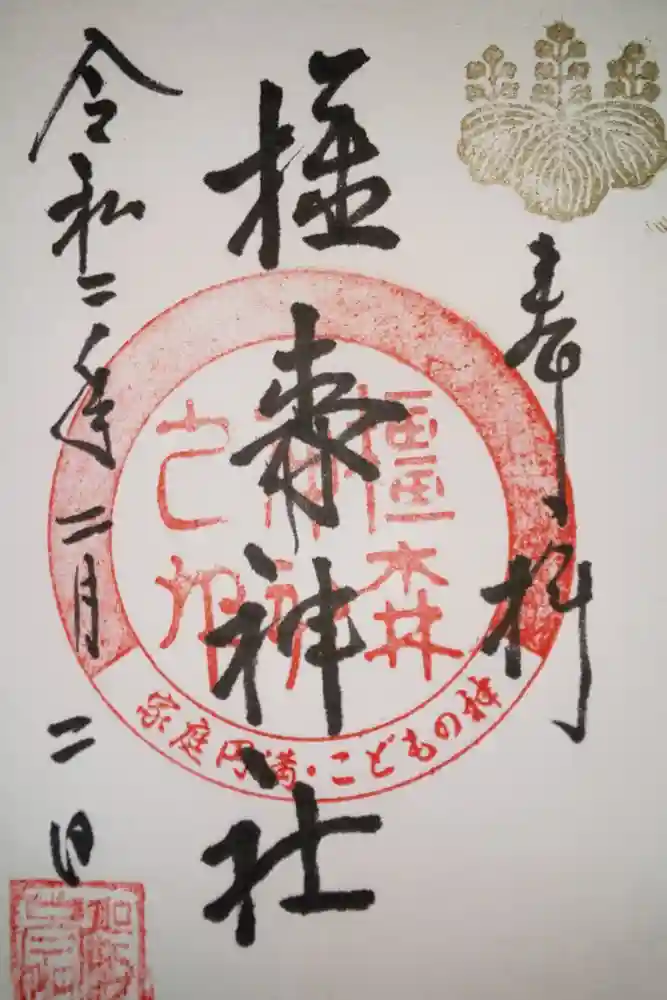 奉拝
橿森神社
橿森神社之印
家庭円満・こどもの神
令和二年二月二日